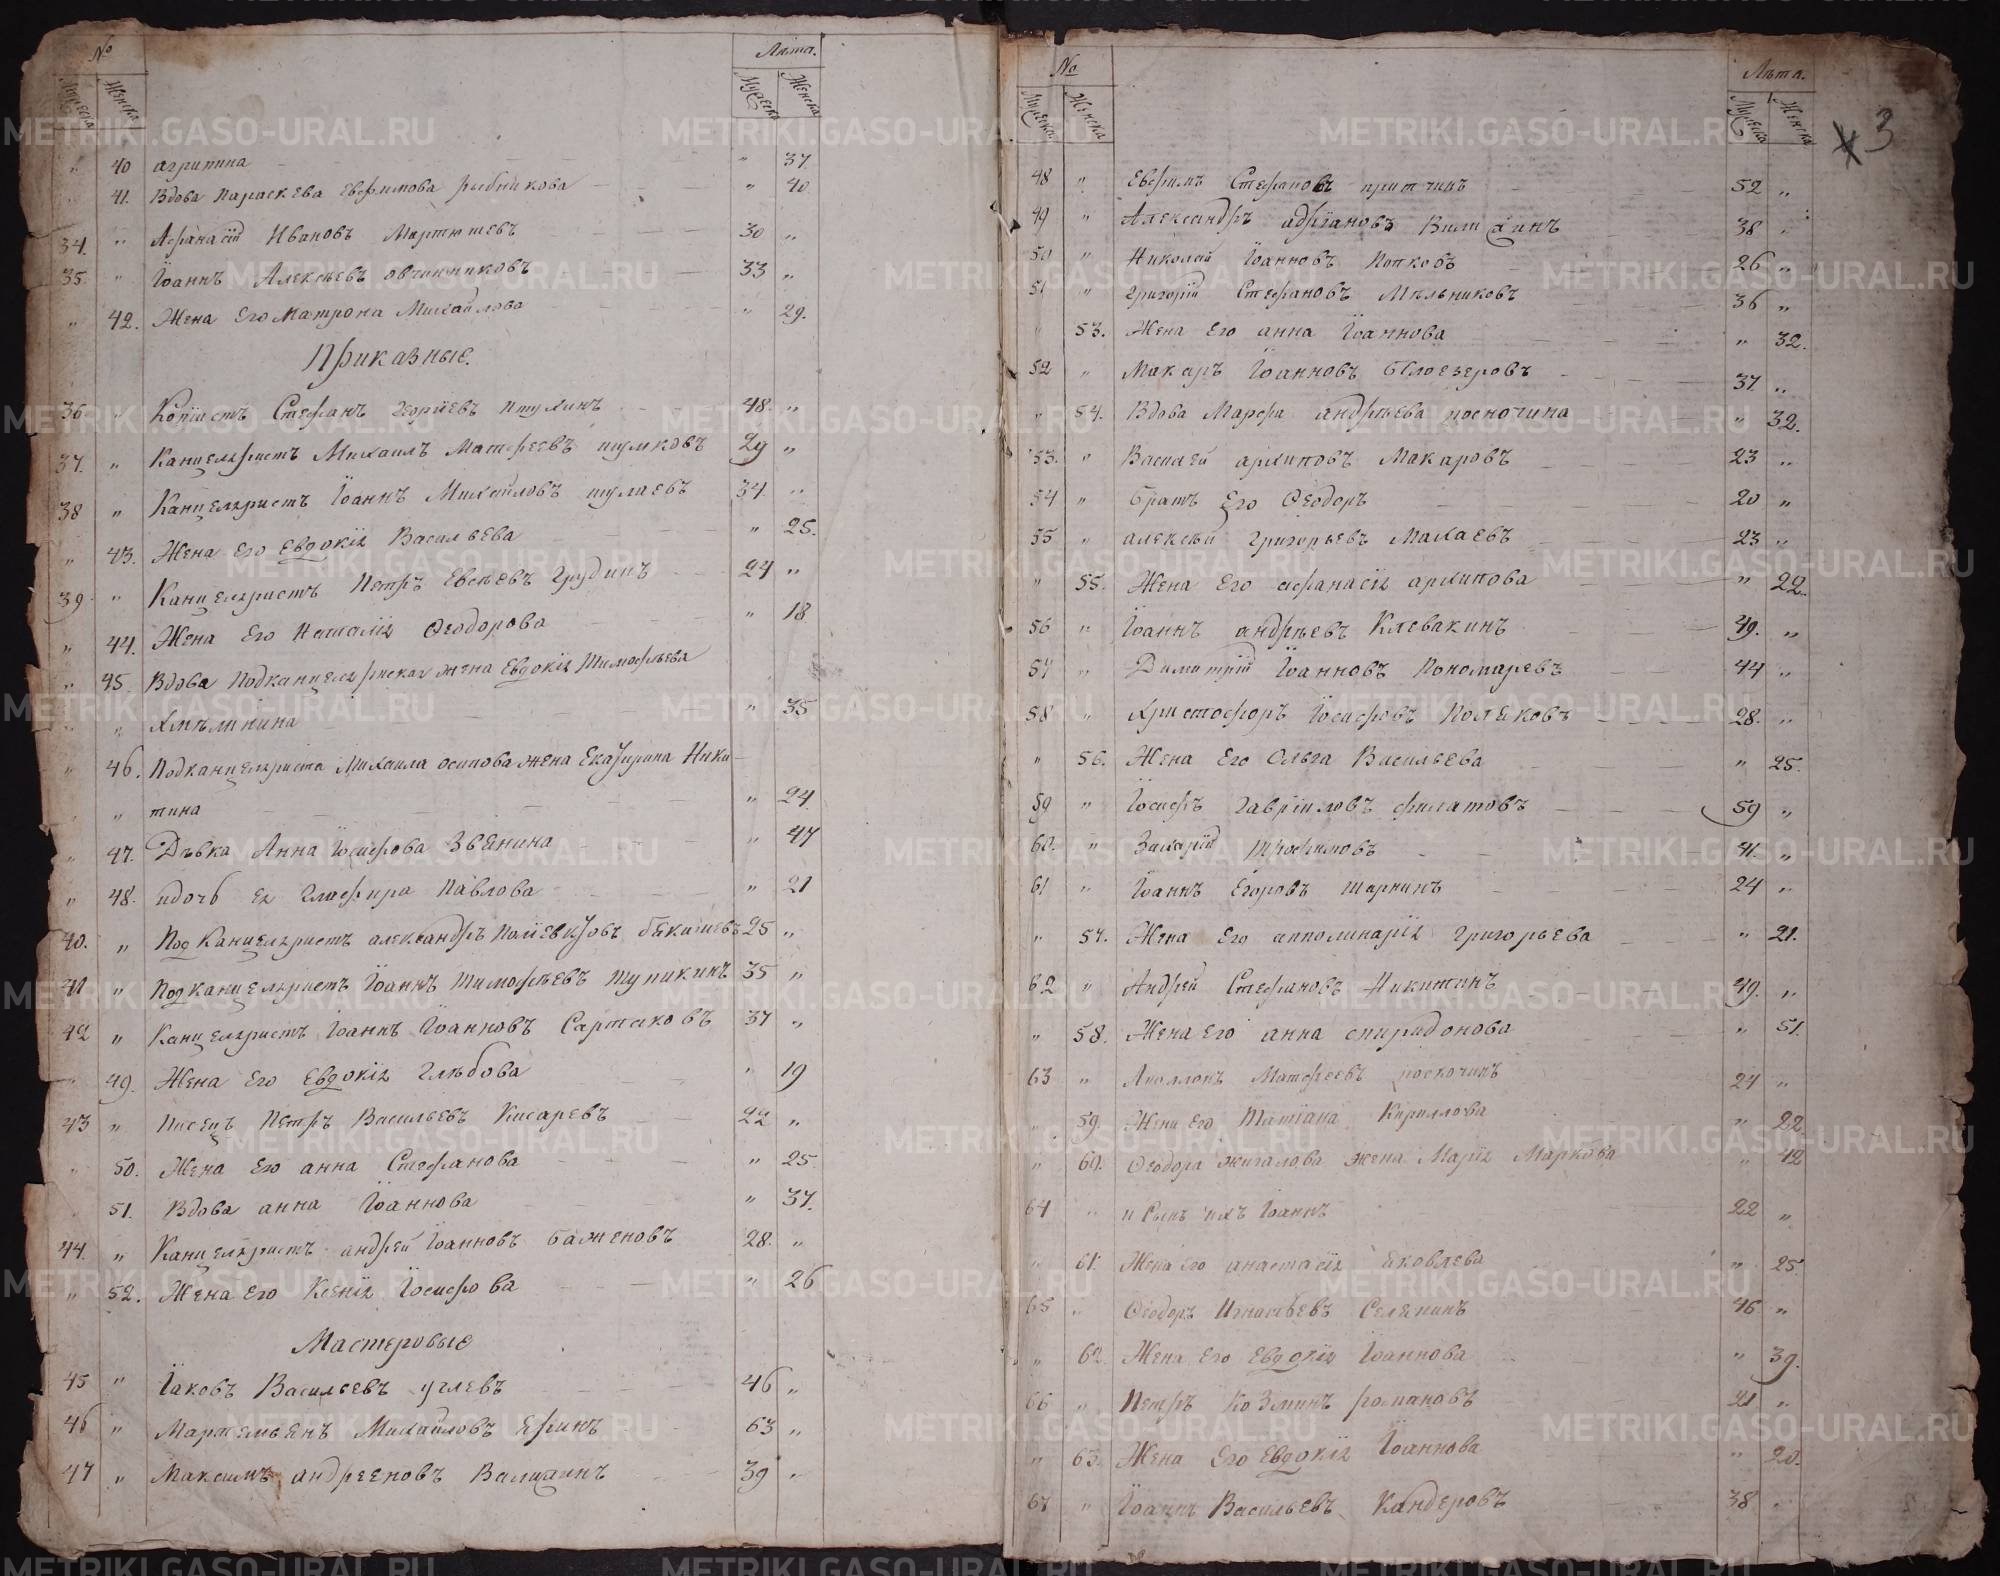 № Лѣта.
Мужеска Женска Мужеска Женска
" 40 агрипина " 37.
41. Вдова Параскева Евфимова рыбникова " 40
34. " Афанасій Ивановъ Мартюшевъ 30 "
35. " Іоаннъ Алексѣевъ овчинниковъ 33 "
" 42. Жена Его Матрона Михайлова " 29.
Приказные.
36 " Копїистъ Стефанъ Георгіевъ 48. "
37. " Канцеляристъ Михаилъ Матфеевъ 29 "
38 " Канцеляристъ Іоаннъ Михайловъ 34. "
" 43. Жена Его Евдокія Васильева " 25.
39. " Канцеляристъ Петръ Евсѣевъ Грудинъ 24 "
" 44. Жена Его Наталія Ѳеодорова " 18
" 45. Вдова Подканцелярская жена Евдокія Тимофѣева
" " Хмѣлинина " 35
" 46. Подканцеляриста Михаила осипова жена Екатерина Ники
" " тина " 24
" 47. Дѣвка Анна Іосифова Звянина " 47
" 48. идочь ея Глафира Павлова " 21
40. " Подканцеляристъ александръ 25 "
41 " Подканцеляристъ Іоаннъ Тимофѣевъ Тупикинъ 35 "
42 " Канцеляристъ Іоаннъ Іоанновъ Сартаковъ 37 "
" 49. Жена Его Евдокія Глѣбова " 19
43 " Писецъ Петръ Васильевъ Кисаревъ 22 "
" 50. Жена Его анна Стефанова " 25
51. Вдова анна Іоаннова " 37.
44. " Канцеляристъ андрей Іоанновъ баженовъ 28. "
" 52. Жена Его Ксенія Іосифова " 26
Мастеровые
45 " Іаковъ Васильевъ углевъ 46 "
46 " Маркемьянъ Михайловъ 63 "
47 " Максимъ андреяновъ 39 "
№ Лѣта.
Мужеска Женска Мужеска Женска
3
48 " Евфимъ Стефановъ притчинъ 52 "
49 " Александръ адріановъ 38 "
50 " Николай Іоанновъ Попковъ 26 "
51 " григорій Стефановъ Мѣльниковъ 36 "
" 53. Жена Его анна Іоаннова " 32.
52 " Макаръ Іоанновъ бѣлоезеровъ 37 "
" 54. Вдова Марфа андрѣева " 32.
53. " Василей архиповъ Макаровъ 23 "
54 " братъ Его Ѳеодоръ 20 "
55 " алексѣй григорьевъ Махаевъ 23 "
" 55. Жена Его афанасія архипова " 22.
56 " Іоаннъ андрѣевъ Клевакинъ 49. "
57 " Димитрій Іоанновъ Пономаревъ 44 "
58 " Христофоръ Іосифовъ Поляковъ 28. "
" 56. Жена Его Ольга Васильева " 25.
59 " Іосифъ гавріиловъ филатовъ 59 "
60. " Захарій трофимовъ 41. "
61 " Іоаннъ Егоровъ 24 "
" 57. Жена Его апполинарія григорьева " 21.
62 " Андрей Стефановъ Никитинъ 49. "
" 58. Жена Его анна спиридонова " 51.
63 " Аполлонъ Матфеевъ 24 "
" 59. Жена Его Татіана Кириллова " 22
" 60. Ѳеодора жигалова жена Марія Маркова " 42
64 " и Сынъ ихъ Іоаннъ 22 "
" 61. Жена Его анастасія яковлева " 25.
65 " Ѳеодоръ Игнатьевъ Селянинъ 46 "
" 62. Жена Его Евдокія Іоаннова " 39.
66 " Петръ Козминъ романовъ 21 "
" 63. Жена Его Евдокія Іоаннова " 20.
67 " Іоаннъ Васильевъ Кандеровъ 38 "